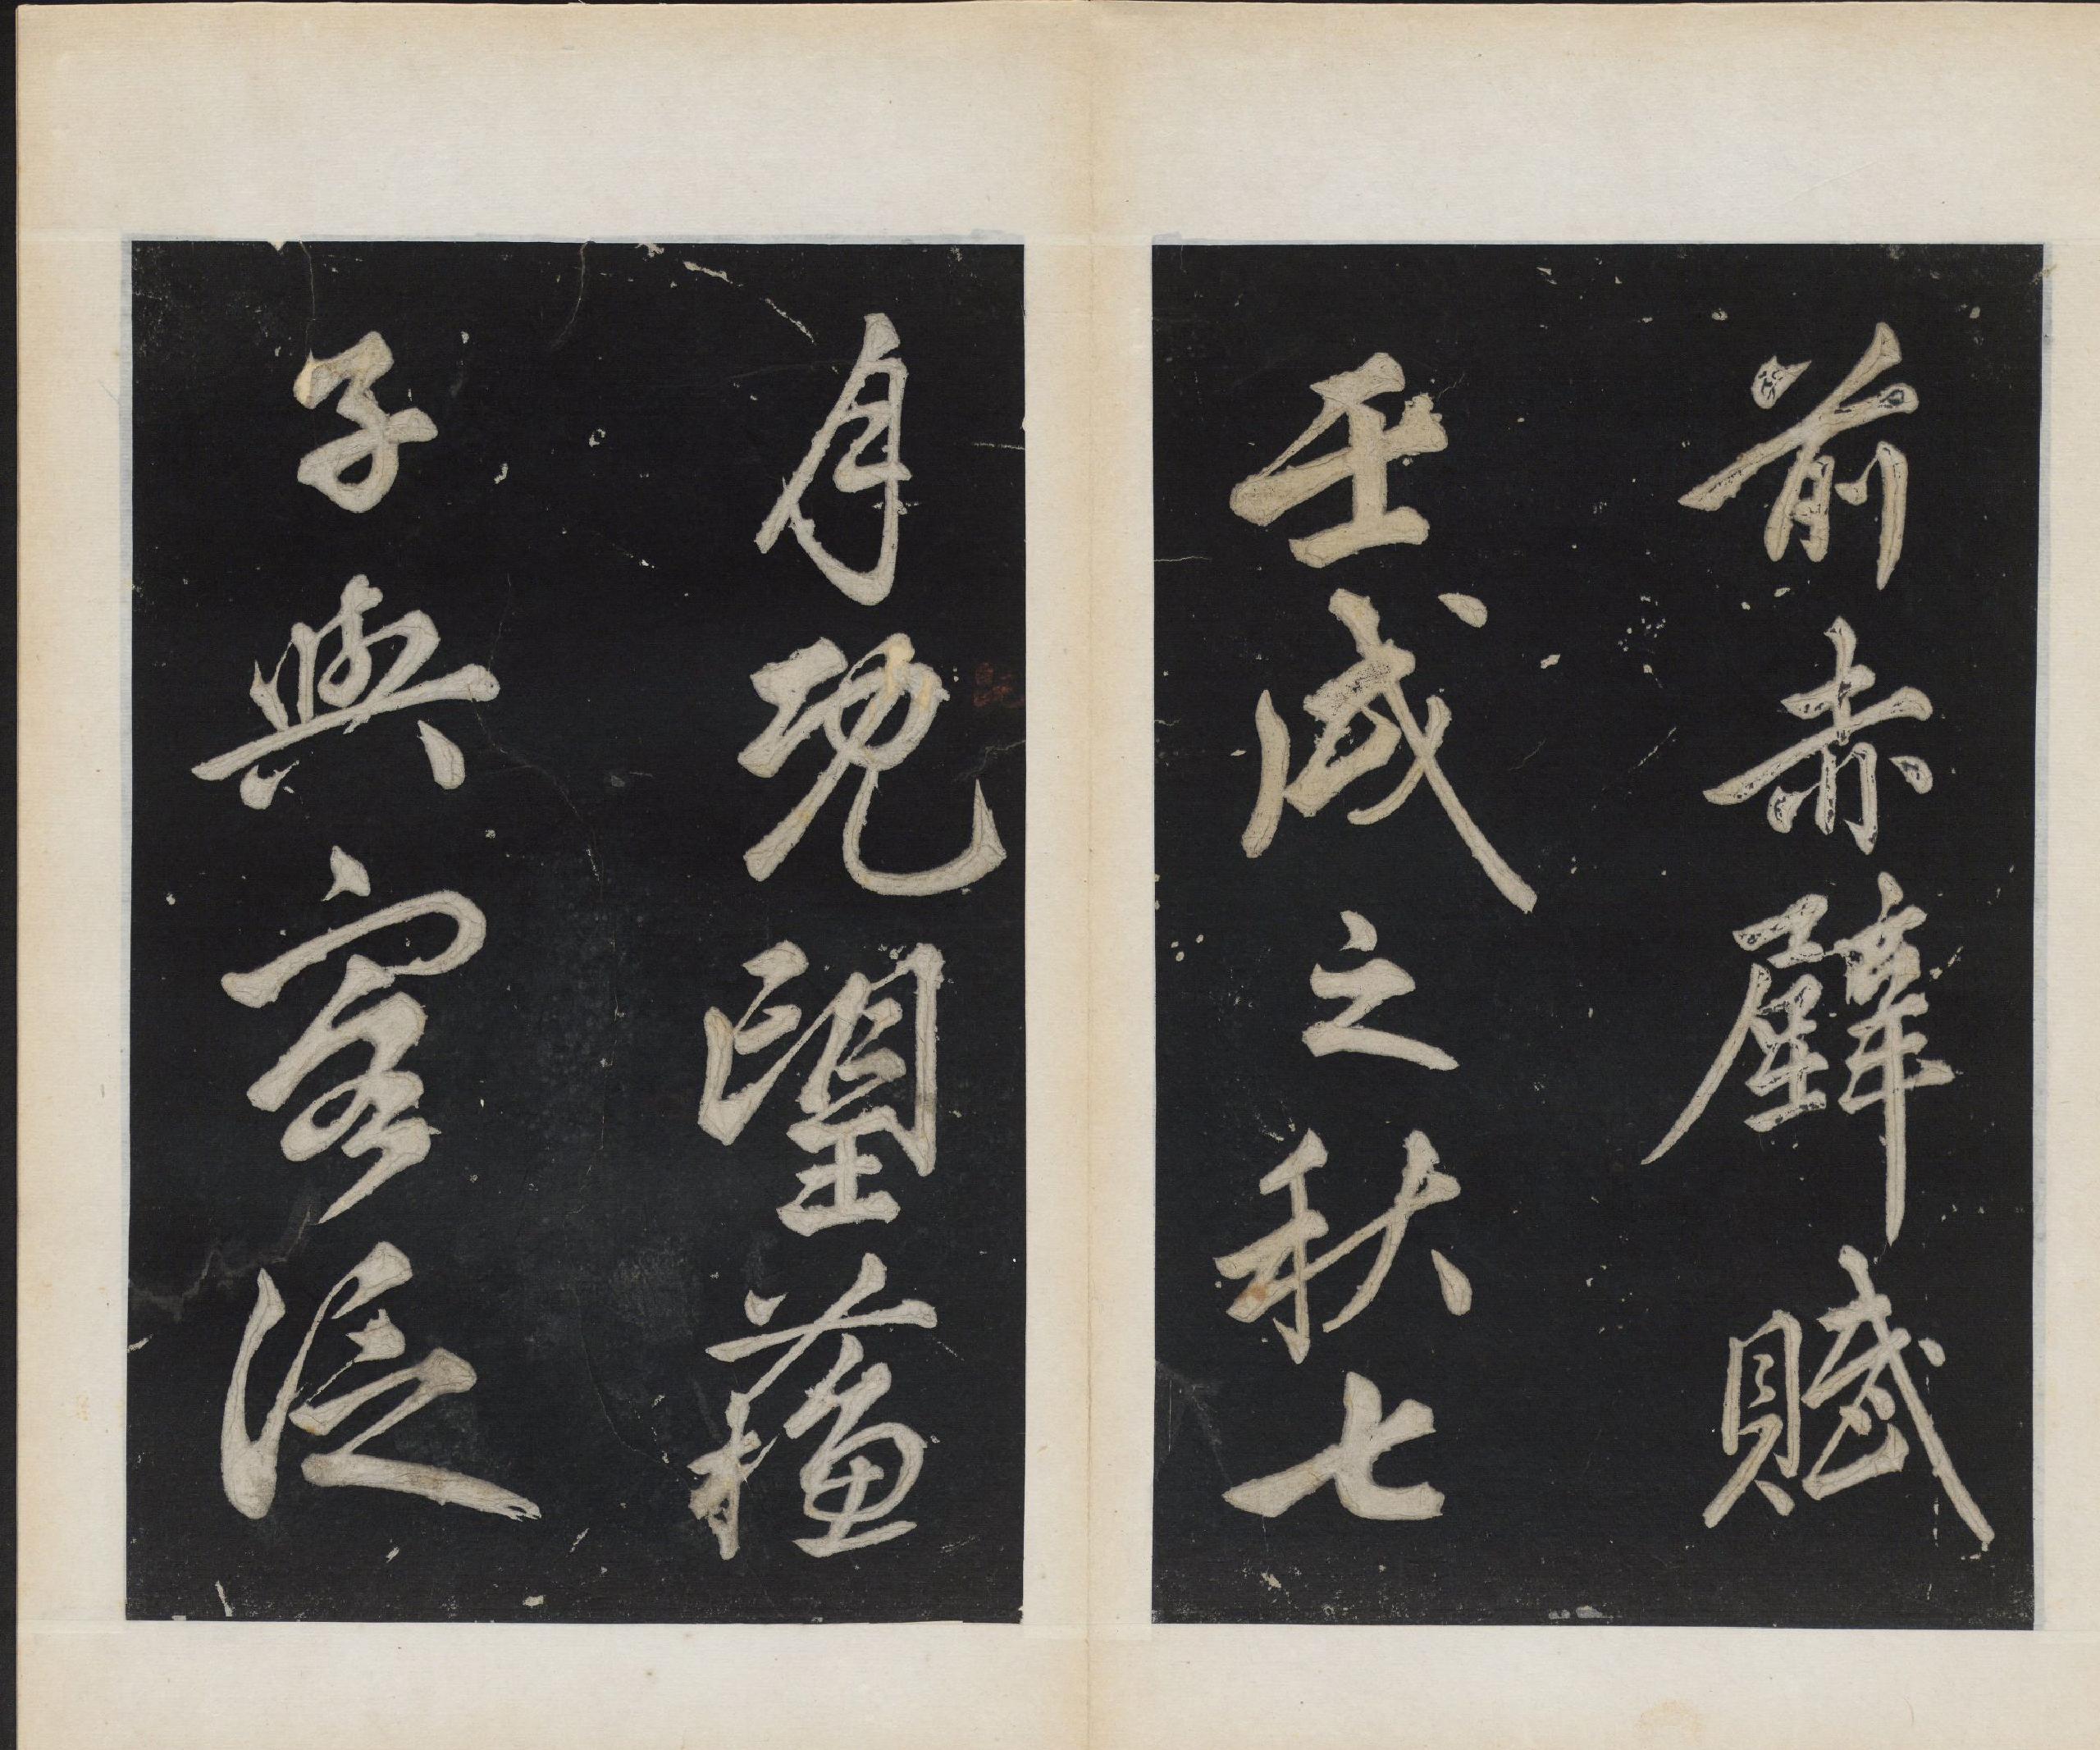 前赤壁賦
壬戌之秋七
月既望蘓
子與客泛